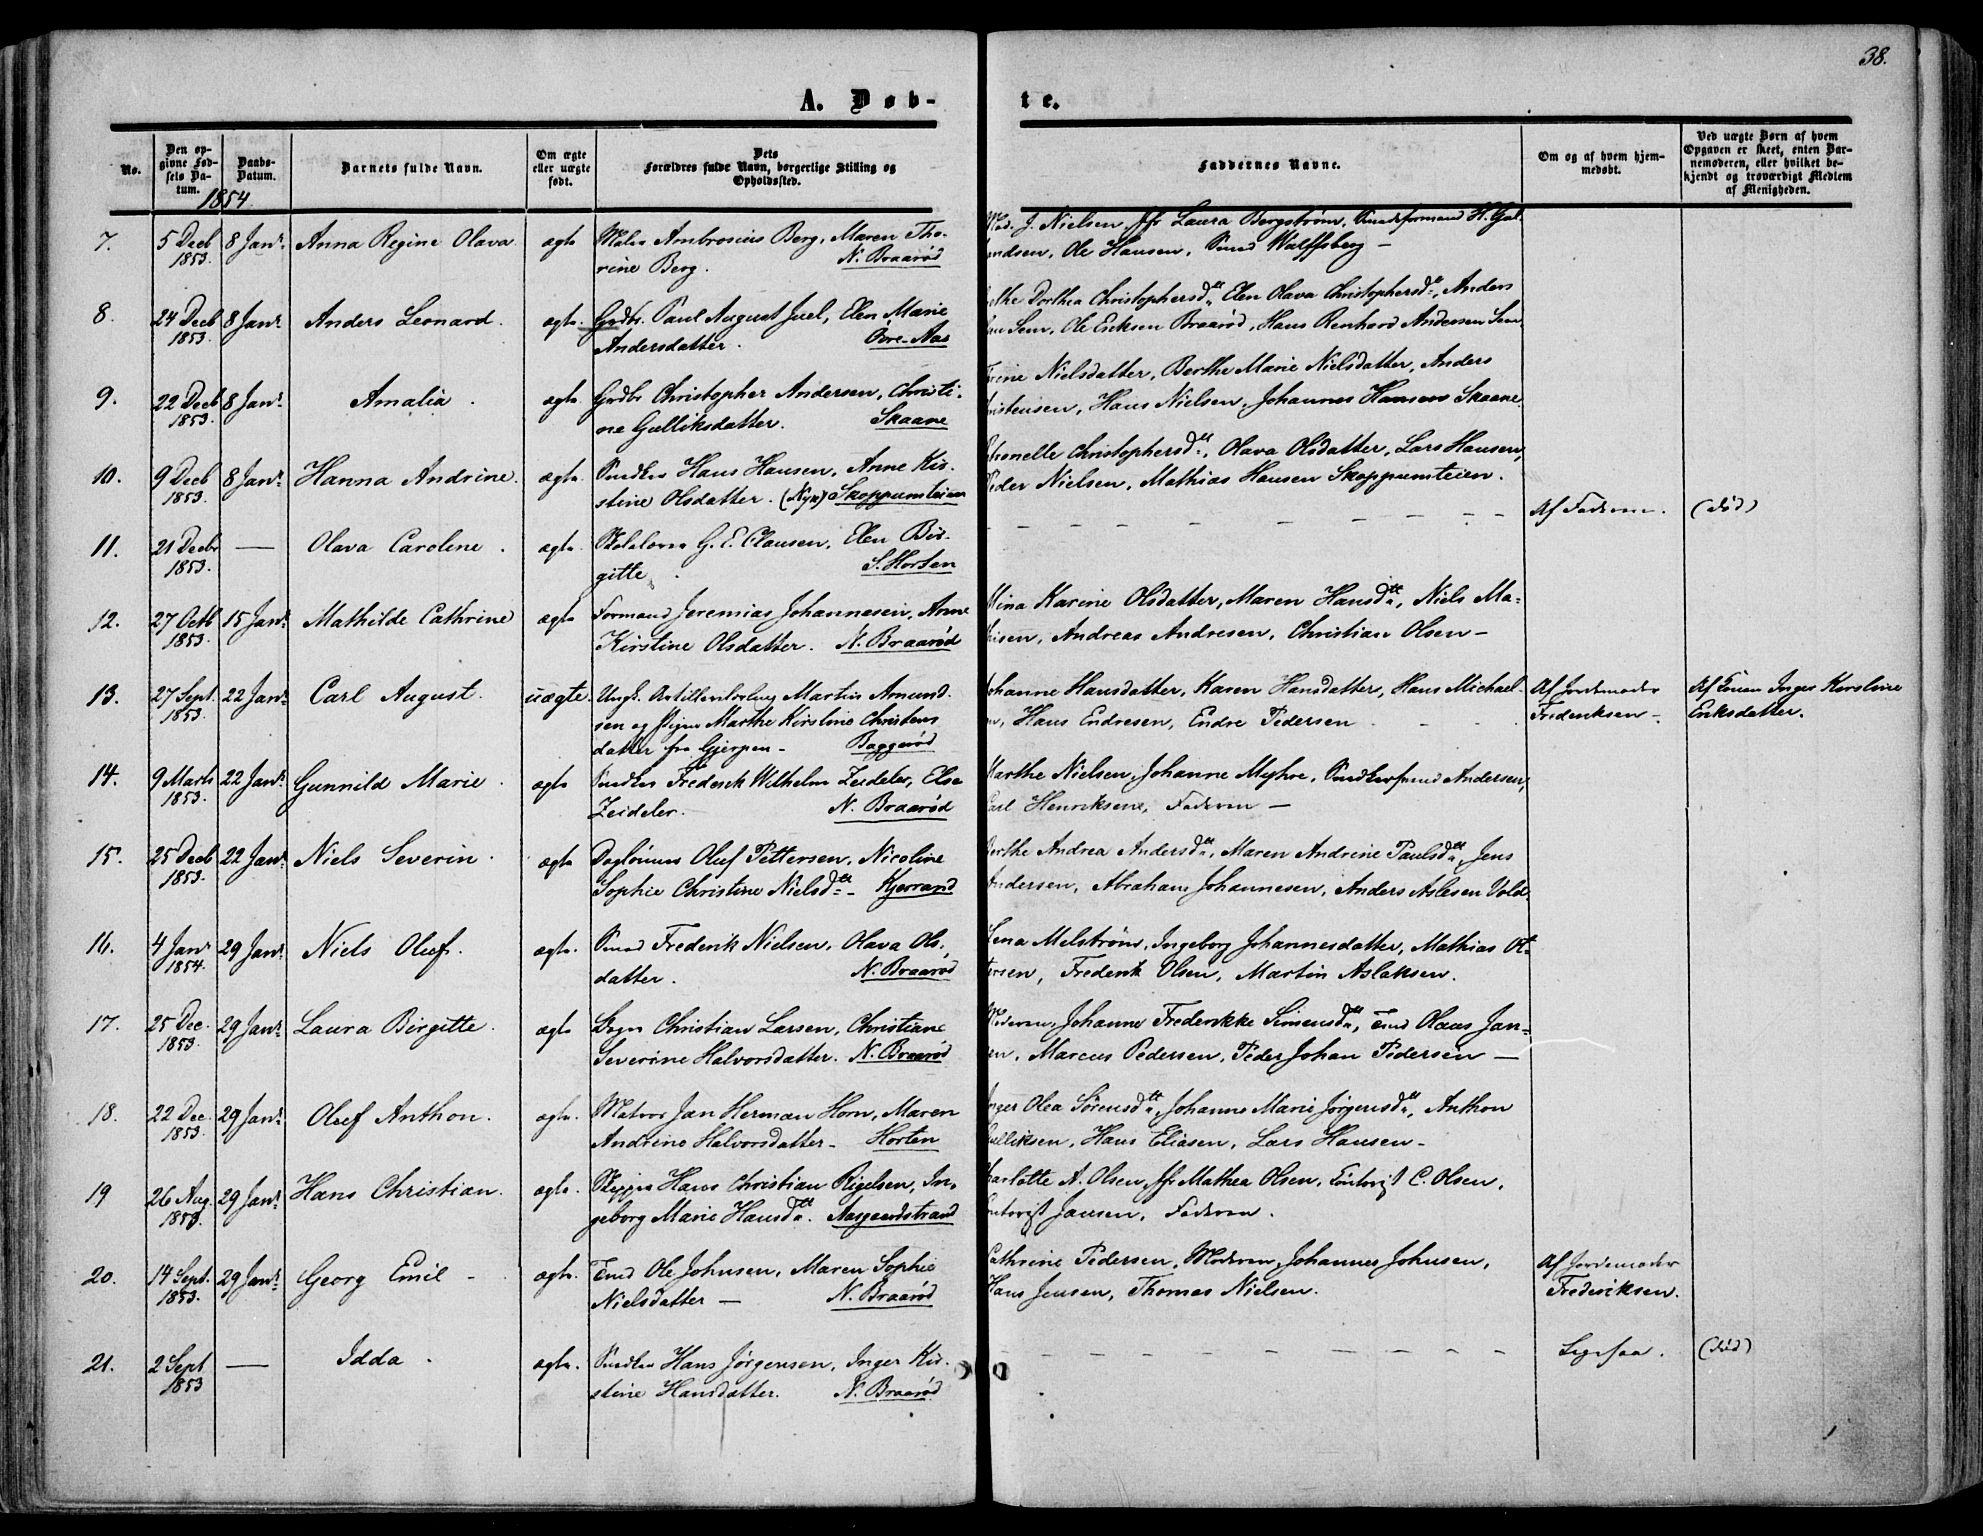 38.
A. Døb-
te.
No.
Den op-
givne Fød-
sels Da-
tum.
Daabs-
Datum.
Barnets fulde Navn.
Om ægte
eller uægte
født.
Dets
Forældres fulde Navn, borgerlige Stilling og
Opholdssted.
Faddernes Navne.
Om og af hvem hjem-
medøbt.
Ved uægte Børn af hvem
Opgaven er skeet, enten Bar-
nemoderen, eller hvilket be-
kjendt og troværdigt Medlem
af Menigheden.
1854.
7. 5 Decb 8 Janr. Anna Regine Olava. ægte Ambrosius Berg, Maren Tho-
1853. rine Berg. N. Braarød
J. Nielsen, Jfr Laura Bergstrøm, H. Gul-
Ole Hansen, Smed Wulfsberg –
8. 24 Decb 8 Janr Anders Leonard. ægte. Grdbr. Paul August Juel, Elen Marie
1853. Andersdatter. Øvre-Aas
Dorthea Christophersdtt, Elen Olava Christophersdtt, Anders
Sem, Ole Eriksen Braarød, Hans Renhard Andersen Sem
9. 22 Decb 8 Janr. Amalia. ægte Grdbr Christopher Andersen, Christi-
1853. ne Gulliksdatter. Skaane
Trine Nielsdatter, Berthe Marie Nielsdatter, Anders
Christensen, Hans Nielsen, Johannes Hansen Skaane.
10. 9 Decb 8 Janr. Hanna Andrine. ægte. Snedker Hans Hansen, Anne Kir-
1853. stine Olsdatter. Skoppumteien
Christophersdtt, Olava Olsdatter, Lars Hansen,
Peder Nielsen, Mathias Hansen Skoppumteien.
11. 21 Decbr — Olava Caroline. ægte. G. E. Clausen, Elen Bir-
1853. gitte. S. Horten
– – – – – – – – Af Faderen. (død)
12. 27 Octb 15 Janr. Mathilde Cathrine ægte Formand Jeremias Johannesen, Anne
1853. Kirstine Olsdatter. N. Braarød
Mina Karine Olsdatter, Maren Hansdtt, Niels Ma-
thisen, Andreas Andresen, Christian Olsen –
13. 27 Sept. 22 Janr. Carl August. uægte. Ungk. Martin Amund-
1853. sen og Pigen Marthe Kirstine Christens
datter fra Gjerpen – Baggerød
Johanne Hansdatter, Karen Hansdatter, Hans Michael-
sen, Hans Endresen, Endre Pedersen
Af Jordemoder
Frederiksen –
Af Konen Inger Karoline
Eriksdatter.
14. 9 Marts 22 Janr. Gunnild Marie. ægte Snedker Frederik Wilhelm Zeideler, Else
1853. Zeideler. N. Braarød
Marthe Nielsen, Johanne Myhre, Andersen,
Carl Henriksen, Faderen –
15. 25 Decb 22 Janr. Niels Severin. ægte Oluf Pettersen, Nicoline
1853. Sophie Christine Nielsdtt – Kjærrand
Berthe Andrea Andersdtt, Maren Andrine Paulsdtt, Jens
Andersen, Abraham Johannesen, Anders Aslesen Vold.
16. 4 Janr 29 Janr. Niels Oluf. ægte. Smed Frederik Nielsen, Olava Ols-
1854. datter. N. Braarød
Lena Melstrøm, Ingeborg Johannesdatter, Mathias Ot-
tersen, Frederik Olsen, Martin Aslaksen.
17. 25 Dec. 29 Janr. Laura Birgitte. ægte Christian Larsen, Christiane
1853. Severine Halvorsdatter. N. Braarød
Moderen, Johanne Frederikke Simensdtt, Tmd Olaus Jan-
sen, Marcus Pedersen, Peder Johan Pedersen —
18. 22 Dec. 29 Janr. Oluf Anthon. ægte. Matros Jan Herman Horn, Maren
1853. Andrine Halvorsdatter – Horten
Inger Olea Sørensdtt, Johanne Marie Jørgensdtt, Anthon
Gulliksen, Hans Eliasen, Lars Hansen –
19 26 Aug. 29 Janr. Hans Christian. ægte. Skipper Hans Christian Rigelsen, In-
1853. geborg Marie Hansdtt. Aasgaardstrand
Charlotte A. Olsen, Jfr Mathea Olsen, C. Olsen,
Jansen, Faderen.
20. 14 Sept. 29 Janr. Georg Emil – ægte. Tmd Ole Johnsen, Maren Sophie
1853. Nielsdatter — N. Braarød
Cathrine Pedersen, Moderen, Johannes Johnsen,
Hans Jensen, Thomas Nielsen.
Af Jordemoder
Frederiksen.
21. 2 Sept — Idda. ægte. Snedker Hans Jørgensen, Inger Kir-
1853 stine Hansdatter. N. Braarød
– – – – – – – – Ligesaa. (død)